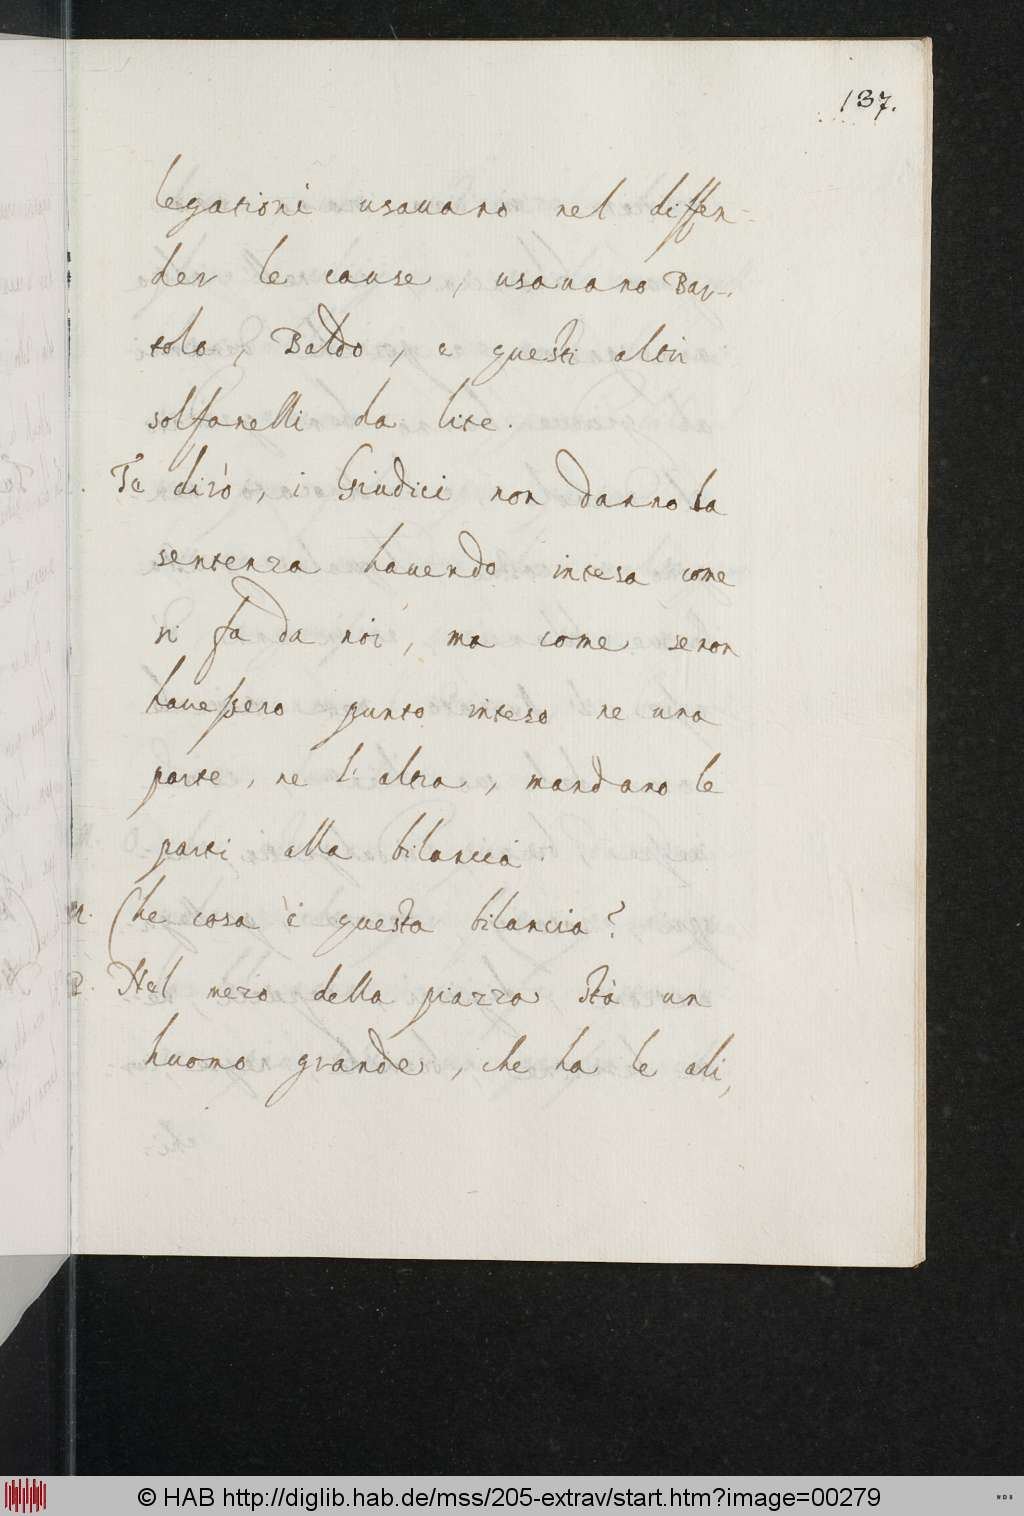 137.
legationi usauano nel diffen-
der le cause, usauano Bar-
tolo, Baldo, e questi altri
solfanelli da lite.
Te dirò, i Giudici non danno la
sentenza hauendo intesa come
si fa da noi, ma come se non
hauessero punto inteso ne una
parte, ne l'altra, mandano le
parti alla bilancia.
Che cosa è questa bilancia?
P. Nel mezo della piazza stà un
huomo grande, che ha le ali,
© HAB http://diglib.hab.de/mss/205-extrav/start.htm?image=00279